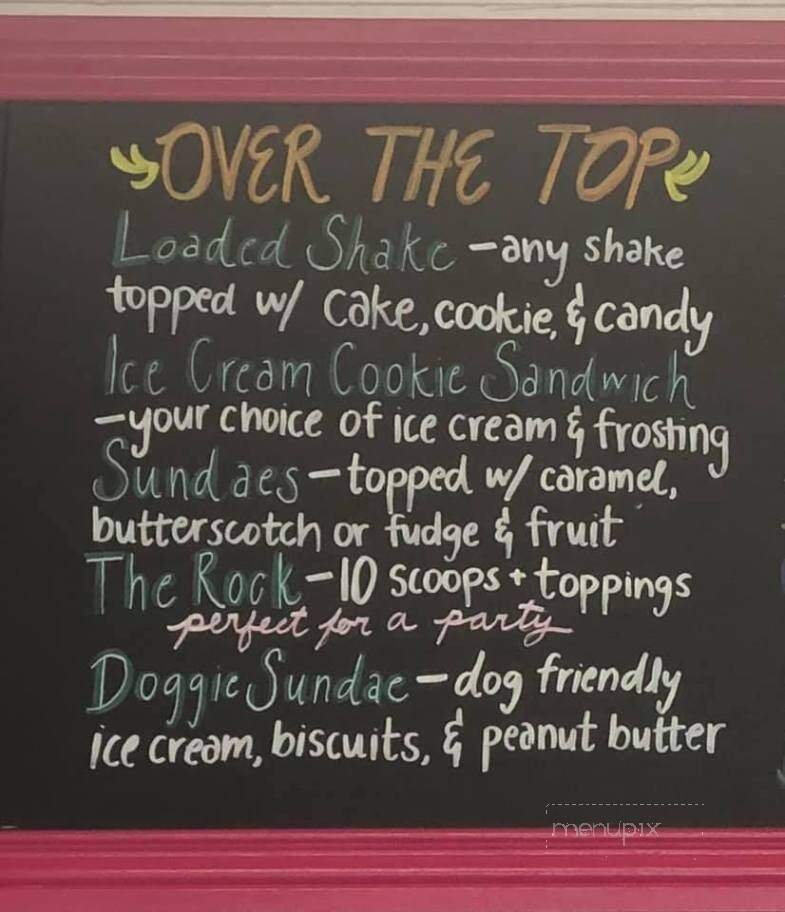 OVER THE TOP
Loaded Shake - any shake
topped w/ cake, cookie, & candy
Ice Cream Cookie Sandwich
- your choice of ice cream & frosting
Sundaes - topped w/ caramel,
butterscotch or fudge & fruit
The Rock - 10 scoops + toppings
perfect for a party
Doggie Sundae - dog friendly
ice cream, biscuits, & peanut butter
menupix